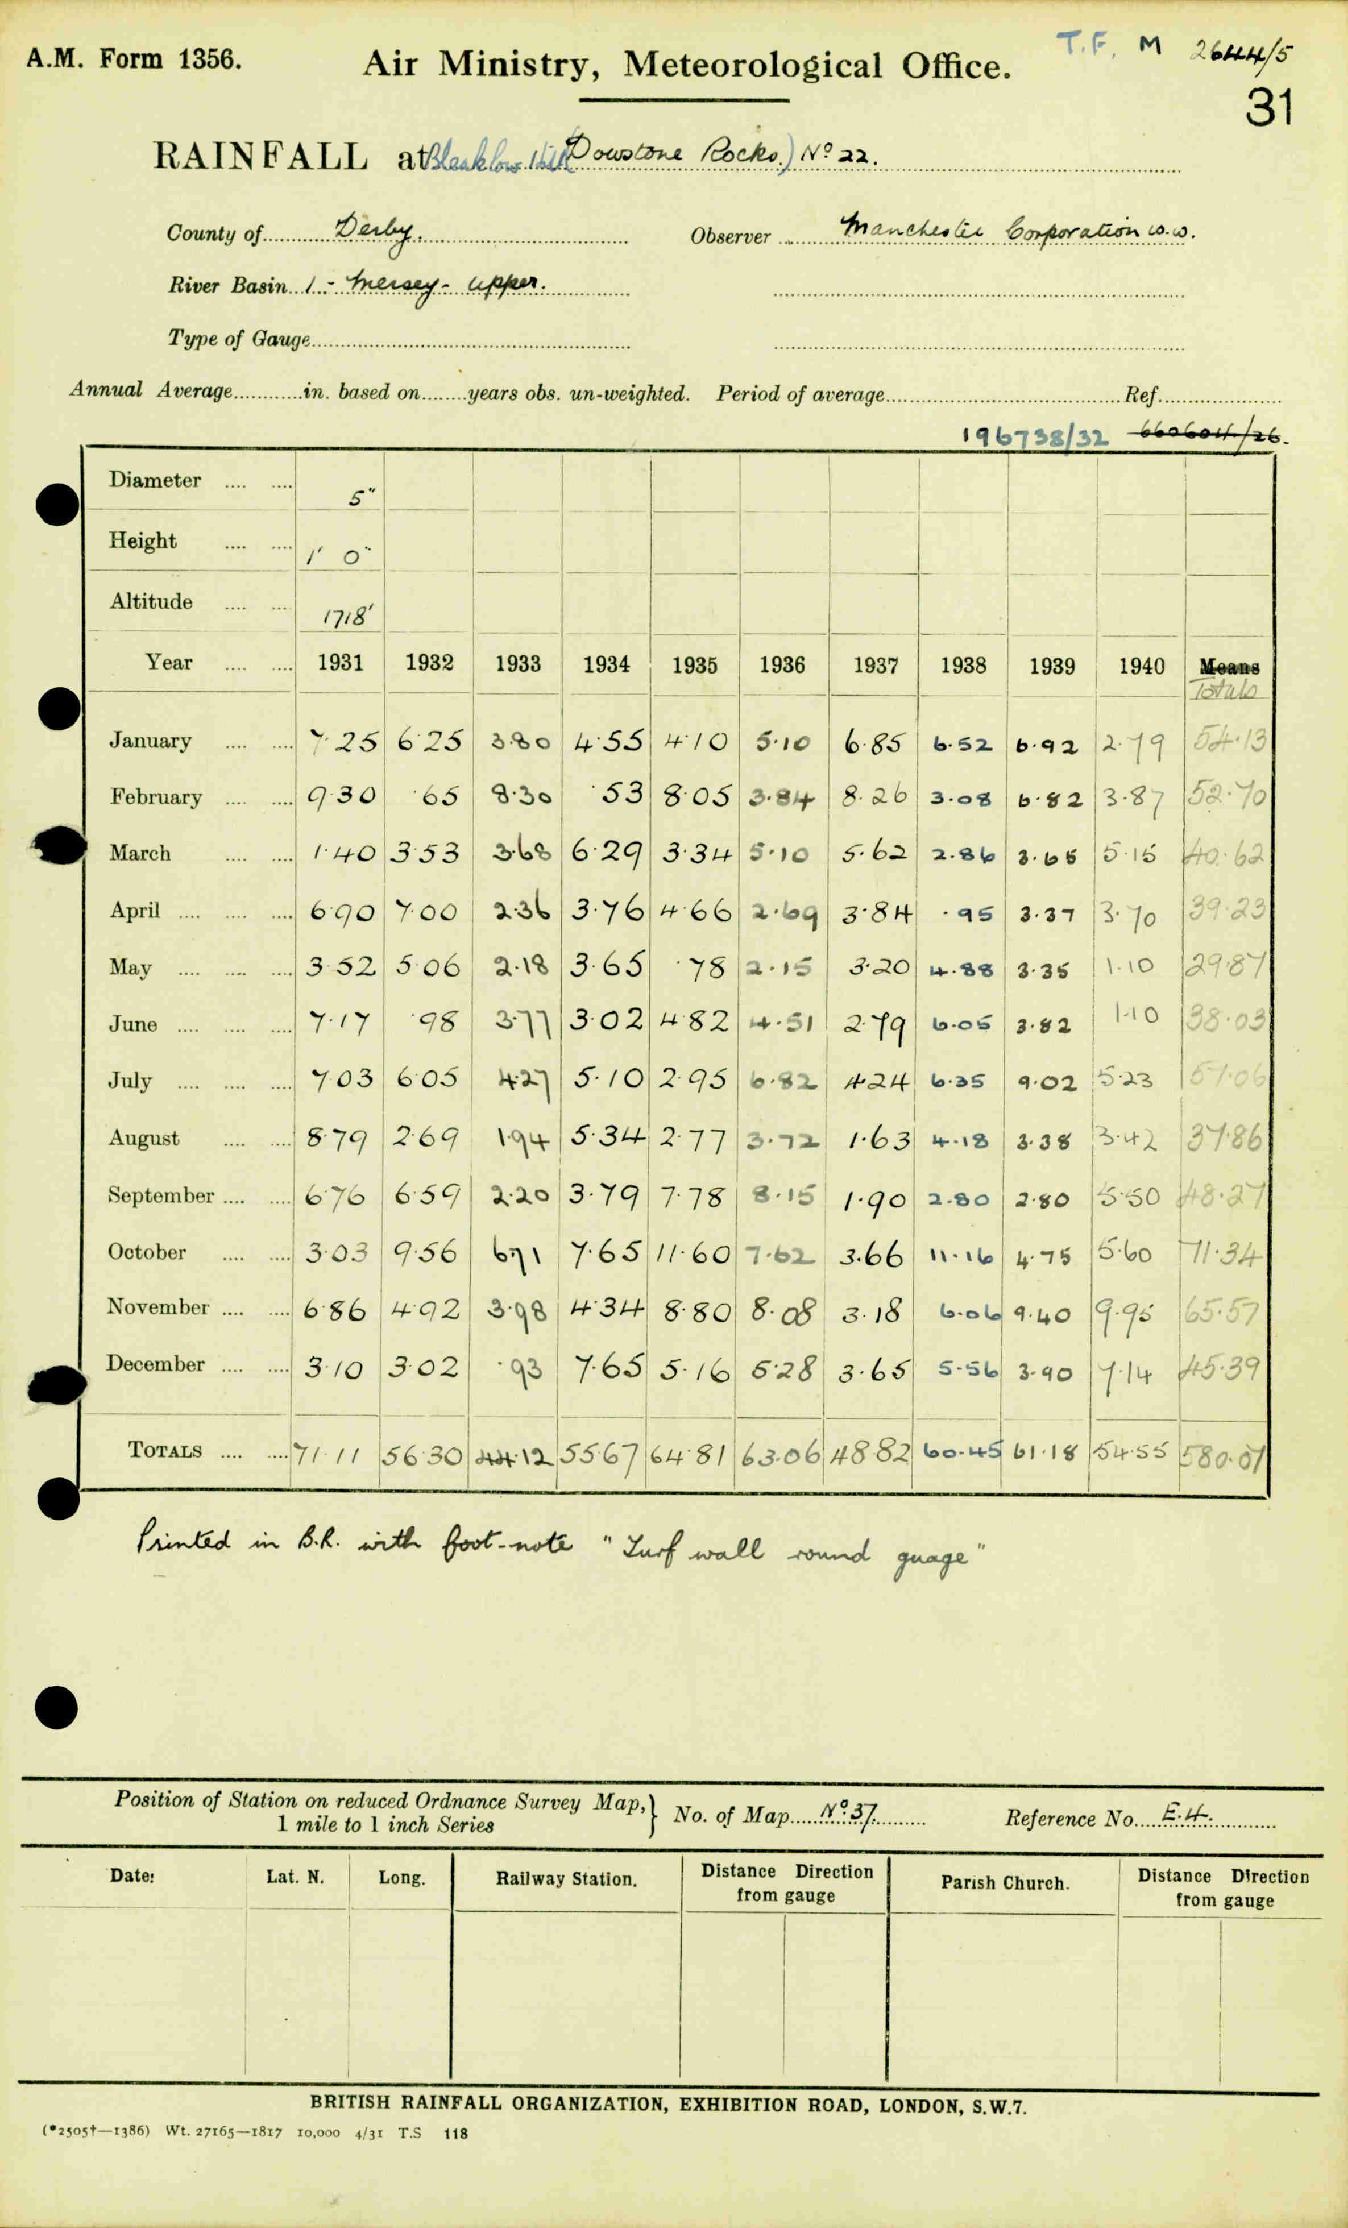 T.F. M 2644/5
A.M. Form 1356. Air Ministry, Meteorological Office.
31
RAINFALL at Bleaklow Hill (Dowstone Rocks.) Nº 22.
County of Derby. Observer Manchester Corporation W.W.
River Basin 1.- Mersey - Upper.
Type of Gauge
Annual Average in. based on years obs. un-weighted. Period of average Ref.
196738/32 660604/26.
Diameter 5"
Height 1' 0"
Altitude 1718'
Year 1931 1932 1933 1934 1935 1936 1937 1938 1939 1940 Means
Totals
January 7.25 6.25 3.80 4.55 4.10 5.10 6.85 6.52 6.92 2.79 54.13
February 9.30 .65 8.30 .53 8.05 3.84 8.26 3.08 6.82 3.87 52.70
March 1.40 3.53 3.68 6.29 3.34 5.10 5.62 2.86 3.65 5.15 40.62
April 6.90 7.00 2.36 3.76 4.66 2.69 3.84 .95 3.37 3.70 39.23
May 3.52 5.06 2.18 3.65 .78 2.15 3.20 4.88 3.35 1.10 29.87
June 7.17 .98 3.77 3.02 4.82 4.51 2.79 6.05 3.82 1.10 38.03
July 7.03 6.05 4.27 5.10 2.95 6.82 4.24 6.35 9.02 5.23 57.06
August 8.79 2.69 1.94 5.34 2.77 3.72 1.63 4.18 3.38 3.42 37.86
September 6.76 6.59 2.20 3.79 7.78 8.15 1.90 2.80 2.80 5.50 48.27
October 3.03 9.56 6.71 7.65 11.60 7.62 3.66 11.16 4.75 5.60 71.34
November 6.86 4.92 3.98 4.34 8.80 8.08 3.18 6.06 9.40 9.95 65.57
December 3.10 3.02 .93 7.65 5.16 5.28 3.65 5.56 3.90 7.14 45.39
TOTALS 71.11 56.30 44.12 55.67 64.81 63.06 48.82 60.45 61.18 54.55 580.07
Printed in B.R. with foot-note "Turf wall round guage"
Position of Station on reduced Ordnance Survey Map, 1 mile to 1 inch Series } No. of Map Nº 37. Reference No. E.4.
Date: Lat. N. Long. Railway Station. Distance Direction from gauge Parish Church. Distance Direction from gauge
BRITISH RAINFALL ORGANIZATION, EXHIBITION ROAD, LONDON, S.W.7.
(*2505†—1386) Wt. 27165—1817 10,000 4/31 T.S 118